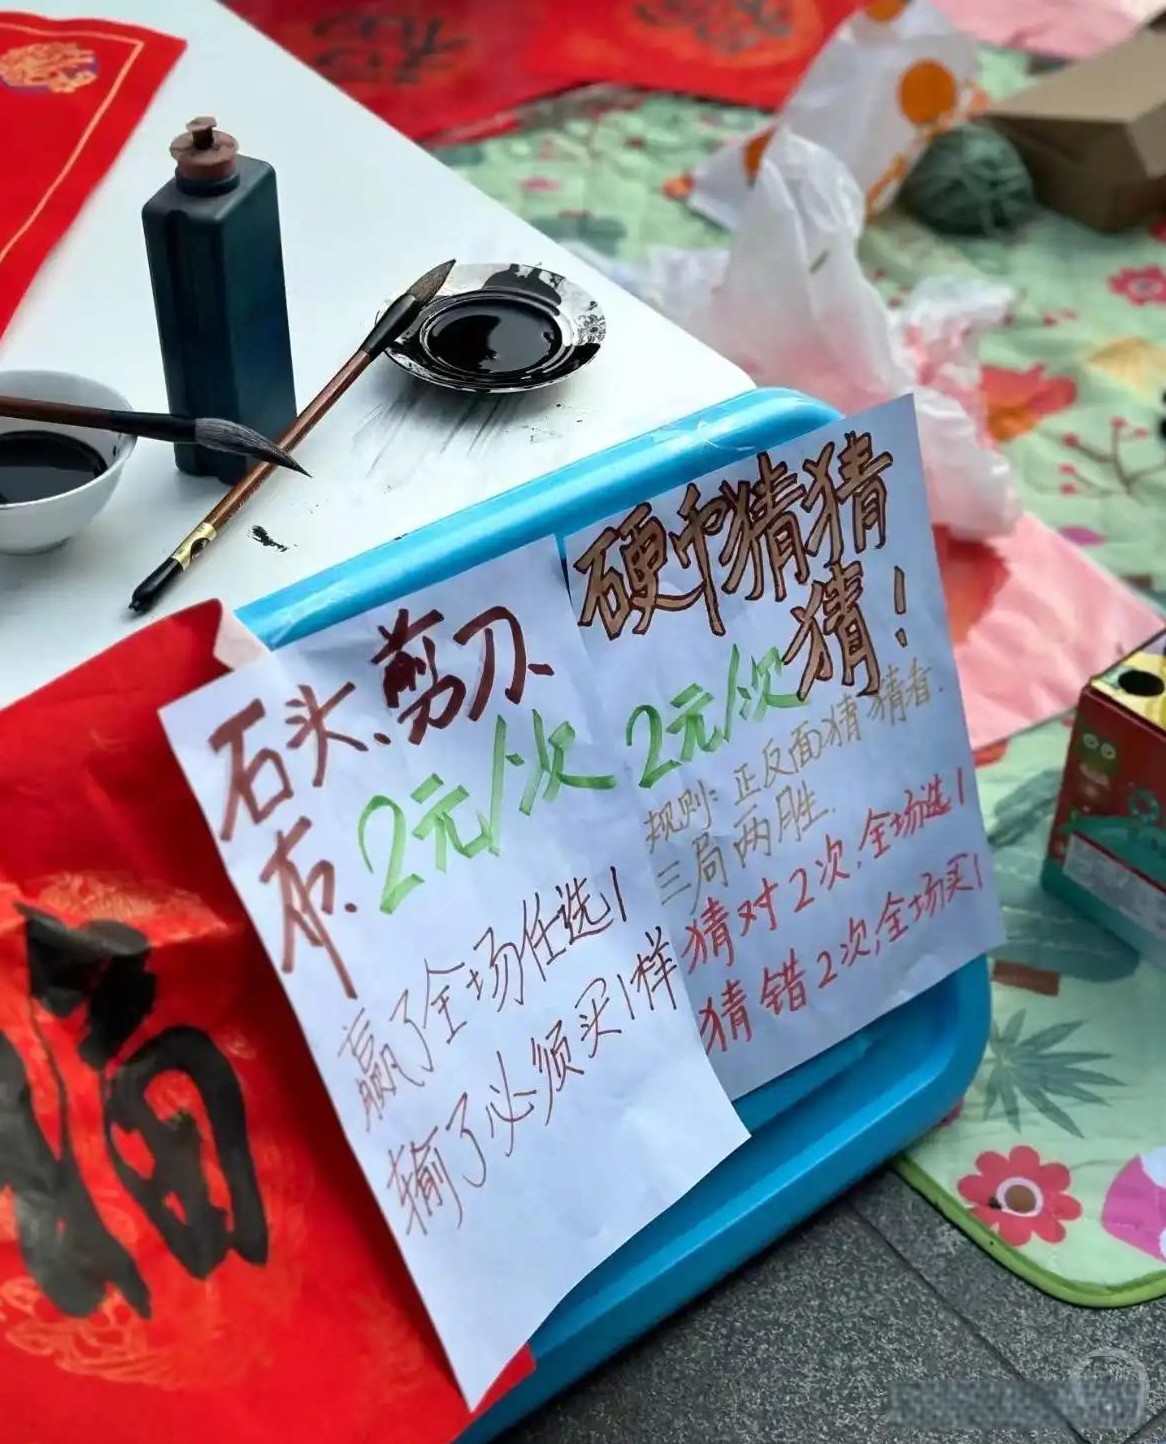 石头、剪刀、
布.
2元/次
赢了全场任选1
输了必须买1样
硬币猜猜
猜！
2元/次
规则：正反面猜猜看.
三局两胜.
猜对2次,全场选1
猜错2次,全场买1
福